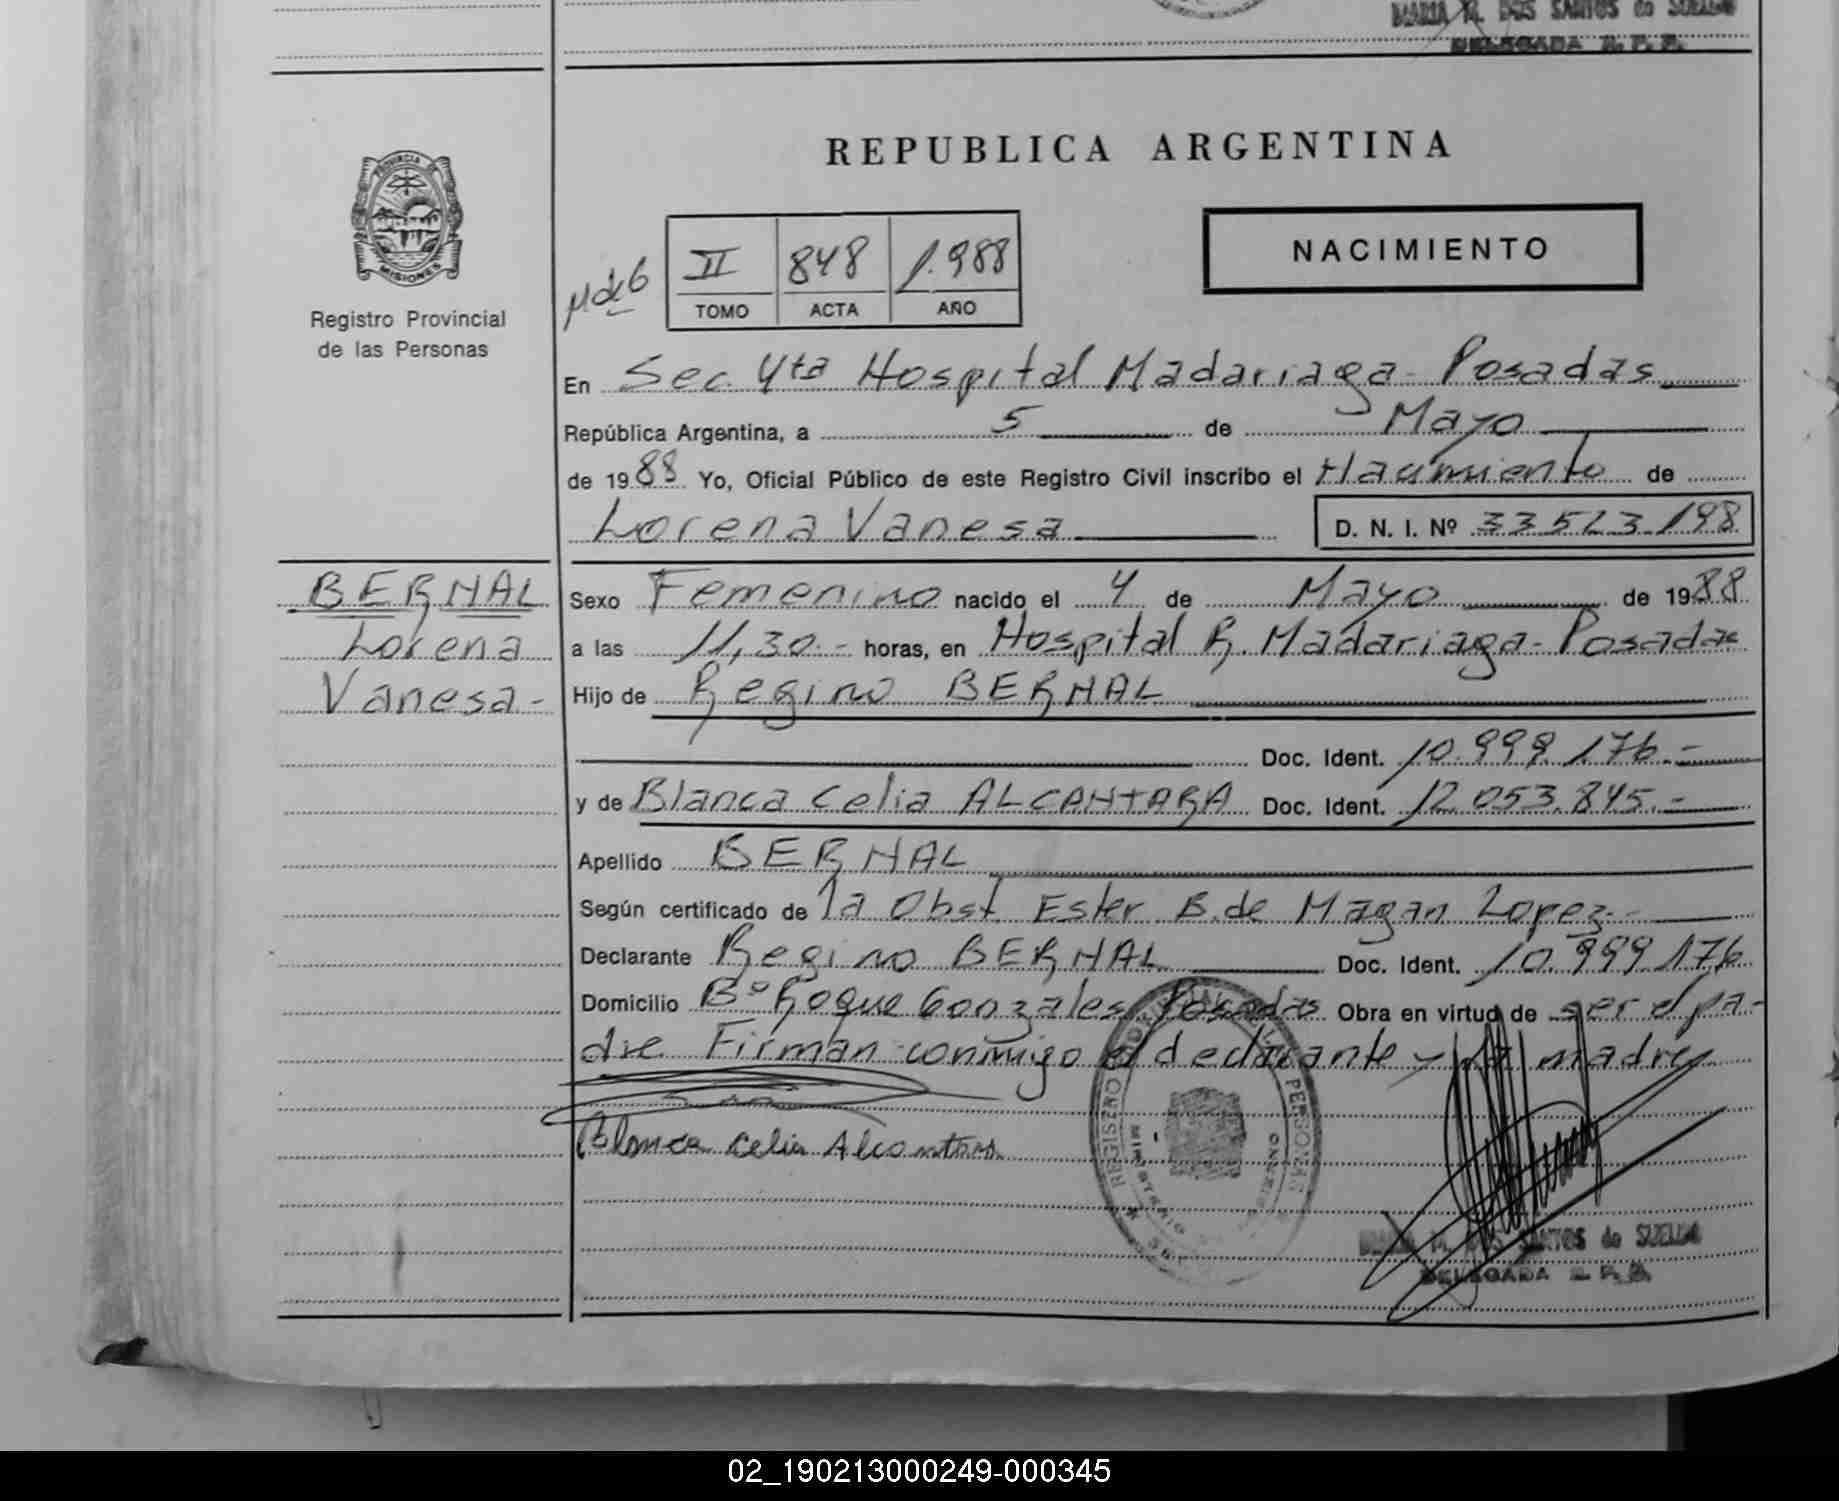 MARIA M. DOS SANTOS de SUELDO
DELEGADA R. P. P.
PROVINCIA DE
MISIONES
Registro Provincial
de las Personas
REPUBLICA ARGENTINA
NACIMIENTO
II 848 1.988
TOMO ACTA AÑO
En Sec. 4ta Hospital Madariaga - Posadas
República Argentina, a 5 de Mayo
de 1988 Yo, Oficial Público de este Registro Civil inscribo el Nacimiento de
Lorena Vanesa D. N. I. Nº 33523198
BERNAL
Lorena
Vanesa-
Sexo Femenino nacido el 4 de Mayo de 1988
a las 11,30.- horas, en Hospital R. Madariaga - Posadas
Hijo de Regino BERNAL
Doc. Ident. 10.999.176.-
y de Blanca Celia ALCANTARA Doc. Ident. 12.053.845.-
Apellido BERNAL
Según certificado de la Obst Ester B. de Magan Lopez.-
Declarante Regino BERNAL Doc. Ident. 10.999.176
Domicilio Bº Roque Gonzales Posadas Obra en virtud de ser el pa-
dre Firman conmigo el declarante y la madre
Blanca Celia Alcantara
REGISTRO PERSONAS
MINISTERIO
MARIA M. DOS SANTOS de SUELDO
DELEGADA R. P. P.
02_190213000249-000345